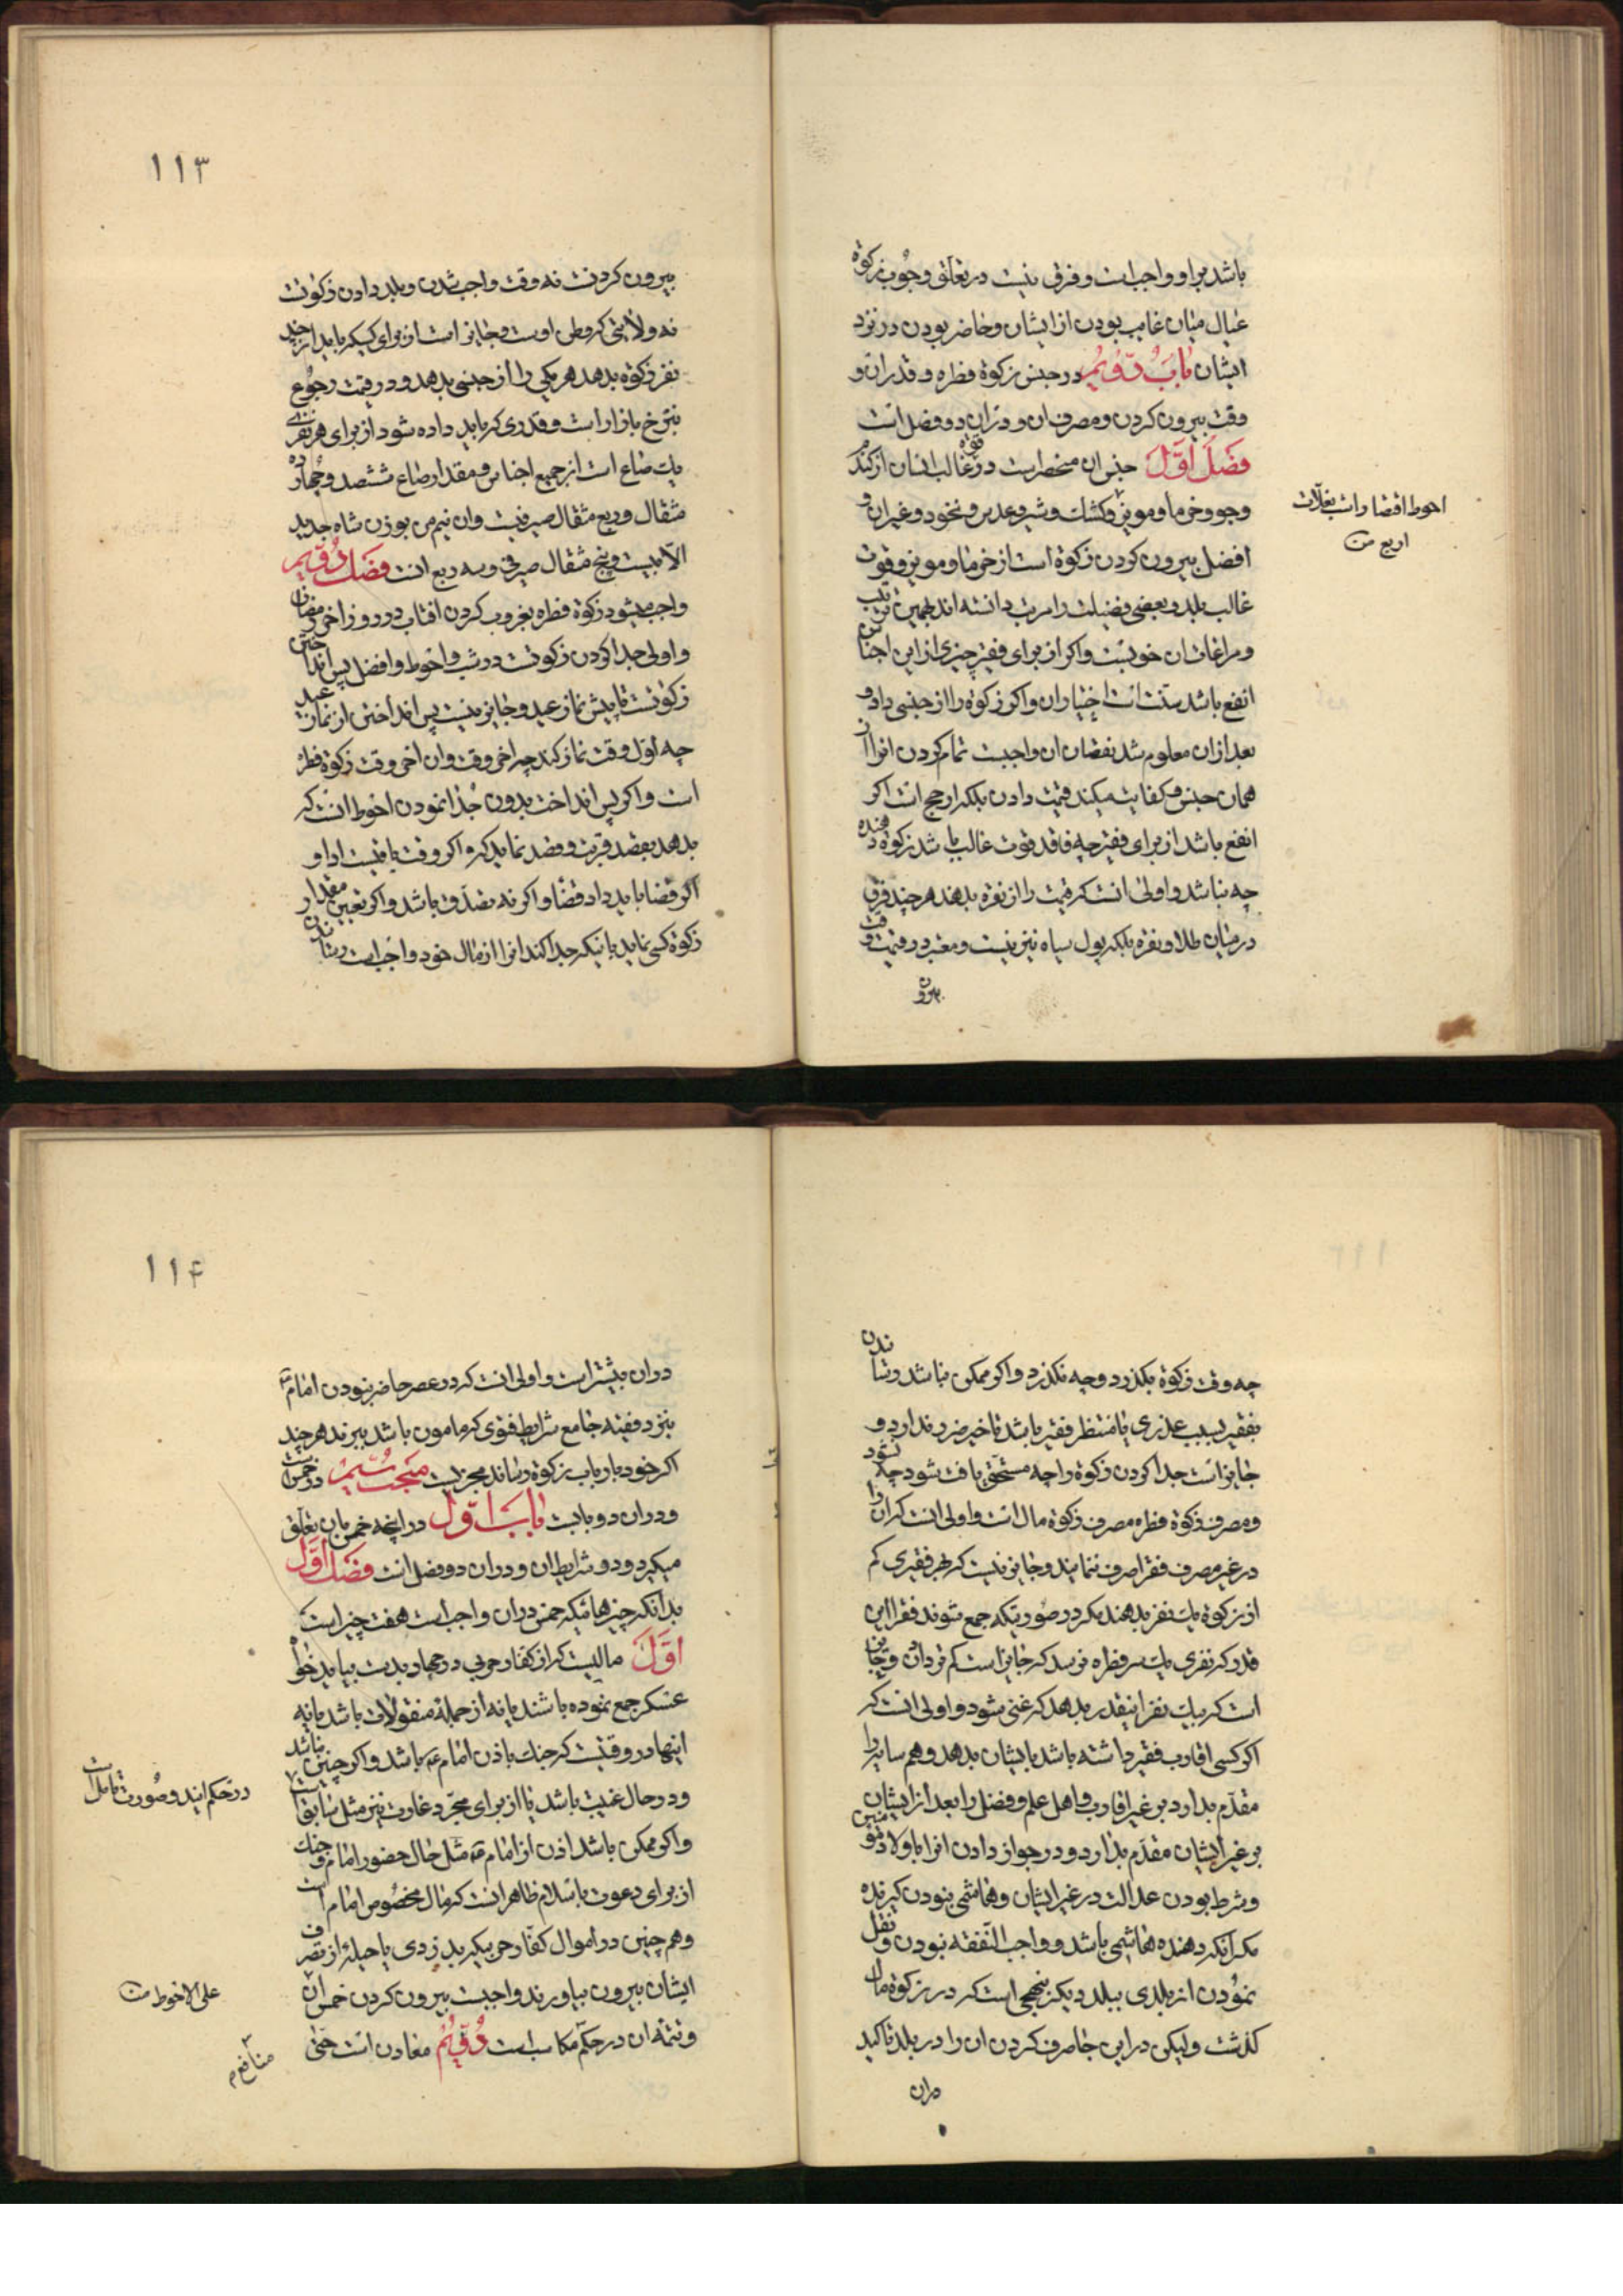 باشد بر او واجب است و فرق نیست در تعلق وجوب زکوة
عیال میان غایب بودن از ایشان و حاضر بودن در نزد
ایشان باب دویم در جنس زکوة فطره و قدر ان و
وقت بیرون کردن و مصرف ان و در ان دو فصل است
فصل اول جنس ان منحصر است در قوة غالب انسان از کندم
و جو و خرما و مویز و کشک و شیر و عدس و نخود و غیر ان و
احوط اقتصار است بغلات
اربع منه
افضل بیرون کردن زکوة است از خرما و مویز و قوت
غالب بلد و بعضی فضیلت را مرتب دانسته اند بهمین ترتیب
و مراعات ان خوبست و اکر از برای فقیر چیزی از این اجناس
انفع باشد سنت است اختیار ان و اکر زکوة را از جنسی داد و
بعد از ان معلوم شد نقصان ان واجبست تمام کردن انرا از
همان جنس و کفایت میکند قیمت دادن بلکه ارجح است اکر
انفع باشد از برای فقیر چه فاقد قوت غالب باشد زکوة دهنده
چه نباشد و اولی انست که قیمت را از نقره بدهند هر چند فرق
در میان طلا و نقره بلکه پول سیاه نیز نیست و معتبر در قیمت وقت
بیرون
۱۱۳
بیرون کردنست نه وقت واجب شدن و بلد دادن زکوتست
نه ولایتی که وطن اوست و جایز است از برای کسیکه باید از چند
نفر زکوة بدهد هر یکی را از جنسی بدهد و در قیمت رجوع
بنرخ بازار است و قدری که باید داده شود از برای هر نفری
یک صاع است از جمیع اجناس و مقدار صاع ششصد و چهارده
مثقال و ربع مثقال صیرفیست و ان نیم من بوزن شاه جدید
الا بیست و پنج مثقال صیرفی و سه ربع است فصل دویم
واجب میشود زکوة فطره بغروب کردن افتاب در روز اخر رمضان
و اولی جدا کردن زکوتست در شب و احوط و افضل پس انداختن
زکوتست تا پیش نماز عید و جایز نیست پس انداختن از نماز عید
چه اول وقت نماز کند چه اخر وقت و ان اخر وقت زکوة فطره
است و اکر پس انداخت بدون جدا نمودن احوط انست که
بدهد بقصد قربت و قصد نماید که اکر وقت باقیست ادا و
اکر قضا باید داد قضا و اکر نه تصدق باشد و اکر تعیین مقدار
زکوة کسی نماید باینکه جدا کند انرا از مال خود واجب است رساندن
چه وقت زکوة بکذرد و چه نکذرد و اکر ممکن نباشد رساندن
بفقیر بسبب عذری یا منتظر فقیر باشد تاخیر ضرر ندارد و
جایز است جدا کردن زکوة را چه مستحق یافت شود چه نشود
و مصرف زکوة فطره مصرف زکوة مال است و اولی انست که ان را
در غیر مصرف فقرا صرف ننمایند و جایز نیست که بهر فقیری کم
از زکوة یک نفر بدهند مکر در صورتیکه جمع شوند فقرا این
قدر که نفری یک سر فطره نرسد که جایز است کمتر دادن و جایز
است که بیک نفر اینقدر بدهد که غنی شود و اولی انست که
اکر کسی اقارب فقیر داشته باشد بایشان بدهد و هم سایه را
مقدم بدارد بر غیر اقارب و اهل علم و فضل را بعد از ایشان
بر غیر ایشان مقدم بدارد و در جواز دادن انرا باولاد مؤمنین
و شرط بودن عدالت در غیر ایشان و هاشمی نبودن کیرنده
مکر انکه دهنده هاشمی باشد و واجب النفقه نبودن و نقل
نمودن از بلدی ببلد دیکر بنهجی است که در زکوة مال
کذشت ولیکن در این جا صرف کردن ان را در بلد تاکید
در ان
۱۱۴
در ان بیشتر است و اولی انست که در عصر حاضر نبودن امام ع
بنزد فقیه جامع شرایط فتوی که مامون باشد ببرند هر چند
اکر خود بارباب زکوة رساند مجزیست مبحث سیم در خمس است
و در ان دو بابست باب اول در انچه خمس بان تعلق
میکیرد و در شرایط ان و در ان دو فصل است فصل اول
بدانکه چیزهائیکه خمس در ان واجب است هفت چیز است
اول مالیست که از کفار حربی در جهاد بدست بیاید خواه
عسکر جمع نموده باشند یا نه از جمله منقولات باشد یا نه
اینها در وقتیست که جنک باذن امام ع باشد و اکر چنین نباشد
و در حال غیبت باشد یا از برای مجرد غارت نیز مثل سابق است
در حکم ایندو صورت تامل است
و اکر ممکن باشد اذن از امام ع مثل حال حضور امام و جنک
از برای دعوت باسلام ظاهر انست که مال مخصوص امام است
و هم چنین در اموال کفار حربی بکیر بدزدی یا حیله از تصرف
ایشان بیرون بیاورند واجبست بیرون کردن خمس ان
علی الاحوط منه
و تتمه ان در حکم مکاسب است دویم معادن است حتی
منافع م